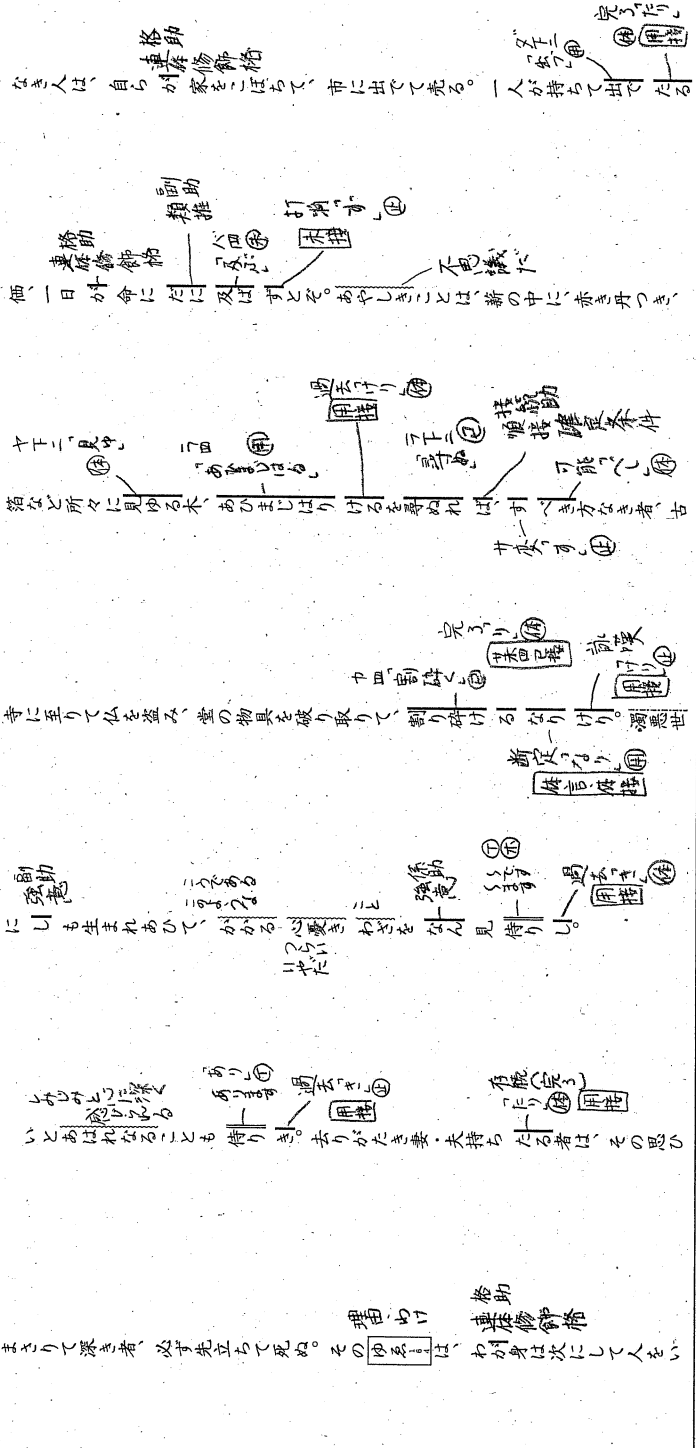 なき人は、自らが家をこぼちて、市に出でて売る。一人が持ちて出でたる
格助
連体修飾格
ダ下二「出づ」㊊用
完了「たり」
体 用接
価、一日が命にだに及ばずとぞ。あやしきことは、薪の中に、赤き丹つき、
格助
連体修飾格
副助
類推
バ四 未
「及ぶ」
打消「ず」止
未接
不思議だ
箔など所々に見ゆる木、あひまじはりけるを尋ぬれば、すべき方なき者、古
ヤ下二「見ゆ」
体
ラ四 用
「あひまじはる」
過去「けり」体
用接
ナ下二 已
「尋ぬ」
接助
順接確定条件
可能「べし」体
サ変「す」止
寺に至りて仏を盗み、堂の物具を破り取りて、割り砕けるなりけり。濁悪世
カ四「割砕く」已
完了「り」体
サ未四已接
断定「なり」用
体言・体接
詠嘆
「けり」止
用接
にしも生まれあひて、かかる心憂きわざをなん見侍りし。
副助
強意
こうである
このような
つらい
いやだ
こと
係助
強意
丁 ホ
〜です
〜ます
過去「き」体
用接
いとあはれなることも侍りき。去りがたき妻・夫持ちたる者は、その思ひ
しみじみと心に深く
感じられる
「あり」丁
あります
過去「き」止
用接
存続(完了)
「たり」体 用接
まさりて深き者、必ず先立ちて死ぬ。そのゆゑは、わが身は次にして人をい
理由・わけ
格助
連体修飾格